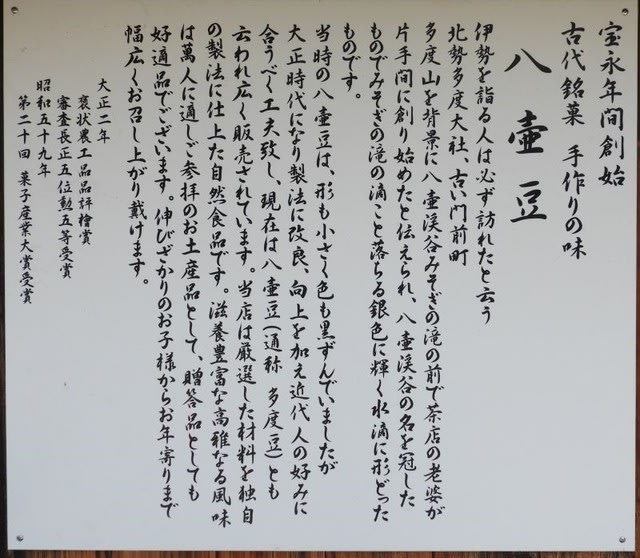 宝永年間創始
古代銘菓　手作りの味
八壷豆
伊勢を詣る人は必ず訪れたと云う
北勢多度大社、古い門前町
多度山を背景に八壷渓谷みそぎの滝の前で茶店の老婆が
片手間に創り始めたと伝えられ、八壷渓谷の名を冠した
ものでみそぎの滝の滴こと落ちる銀色に輝く水滴に形どった
ものです。
当時の八壷豆は、形も小さく色も黒ずんでいましたが
大正時代になり製法に改良、向上を加え近代人の好みに
合うべく工夫致し、現在は八壷豆(通称 多度豆)とも
云われ広く販売されています。当店は厳選した材料を独自
の製法に仕上た自然食品です。滋養豊富な高雅なる風味
は萬人に適しご参拝のお土産品として、贈答品としても
好適品でございます。伸びざかりのお子様からお年寄りまで
幅広くお召し上がり戴けます。
大正二年
褒状農工品品評檜賞
審査長正五位勲五等受賞
昭和五十九年
第二十回　菓子産業大賞受賞